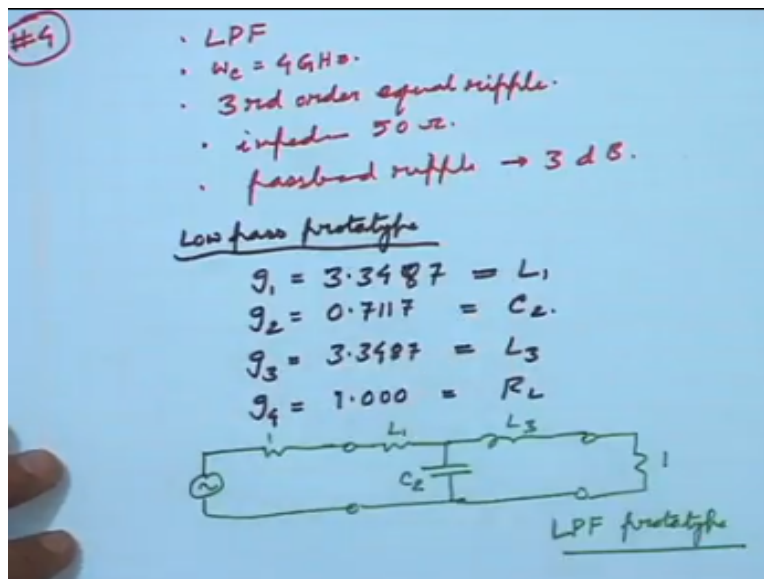 #4
· LPF
· ωc = 4 GHz.
· 3rd order equal ripple.
· imped 50 Ω.
· passband ripple → 3 dB.
Low pass prototype
g1 = 3.3487 = L1
g2 = 0.7117 = C2.
g3 = 3.3487 = L3
g4 = 1.000 = RL
1 L1 L3
C2 1
LPF prototype